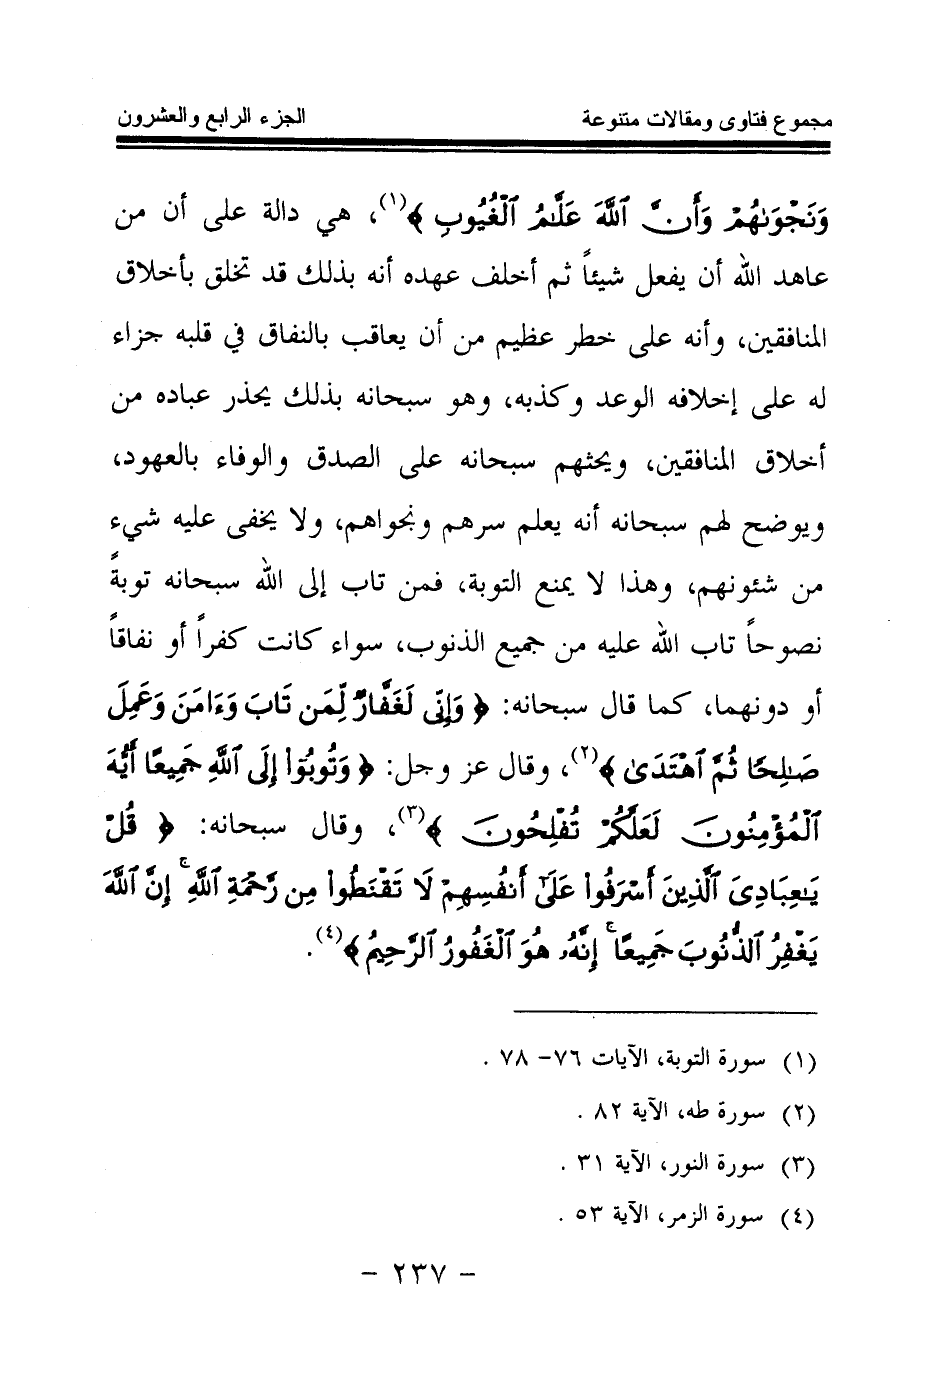 مجموع فتاوى ومقالات متنوعة الجزء الرابع والعشرون
وَنَجْوَىٰهُمْ وَأَنَّ ٱللَّهَ عَلَّـٰمُ ٱلْغُيُوبِ ﴾(١)، هي دالة على أن من
عاهد الله أن يفعل شيئاً ثم أخلف عهده أنه بذلك قد تخلق بأخلاق
المنافقين، وأنه على خطر عظيم من أن يعاقب بالنفاق في قلبه جزاء
له على إخلافه الوعد وكذبه، وهو سبحانه بذلك يحذر عباده من
أخلاق المنافقين، ويحثهم سبحانه على الصدق والوفاء بالعهود،
ويوضح لهم سبحانه أنه يعلم سرهم ونجواهم، ولا يخفى عليه شيء
من شئونهم، وهذا لا يمنع التوبة، فمن تاب إلى الله سبحانه توبةً
نصوحاً تاب الله عليه من جميع الذنوب، سواء كانت كفراً أو نفاقاً
أو دونهما، كما قال سبحانه: ﴿ وَإِنِّى لَغَفَّارٌ لِّمَن تَابَ وَءَامَنَ وَعَمِلَ
صَـٰلِحًا ثُمَّ ٱهْتَدَىٰ ﴾(٢)، وقال عز وجل: ﴿ وَتُوبُوٓا۟ إِلَى ٱللَّهِ جَمِيعًا أَيُّهَ
ٱلْمُؤْمِنُونَ لَعَلَّكُمْ تُفْلِحُونَ ﴾(٣)، وقال سبحانه: ﴿ قُلْ
يَـٰعِبَادِىَ ٱلَّذِينَ أَسْرَفُوا۟ عَلَىٰٓ أَنفُسِهِمْ لَا تَقْنَطُوا۟ مِن رَّحْمَةِ ٱللَّهِ ۚ إِنَّ ٱللَّهَ
يَغْفِرُ ٱلذُّنُوبَ جَمِيعًا ۚ إِنَّهُۥ هُوَ ٱلْغَفُورُ ٱلرَّحِيمُ ﴾(٤).
(١) سورة التوبة، الآيات ٧٦- ٧٨ .
(٢) سورة طه، الآية ٨٢ .
(٣) سورة النور، الآية ٣١ .
(٤) سورة الزمر، الآية ٥٣ .
- ٢٣٧ -